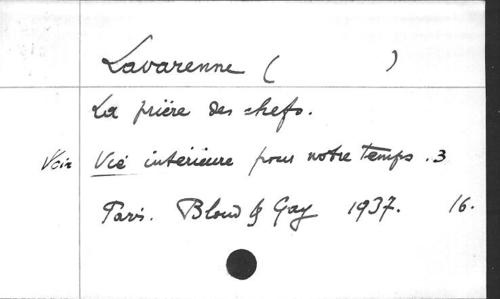 Lavarenne ( )
La prière des chefs.
Voir Vie intérieure pour notre temps. 3
Paris. Bloud & Gay 1937. 16.